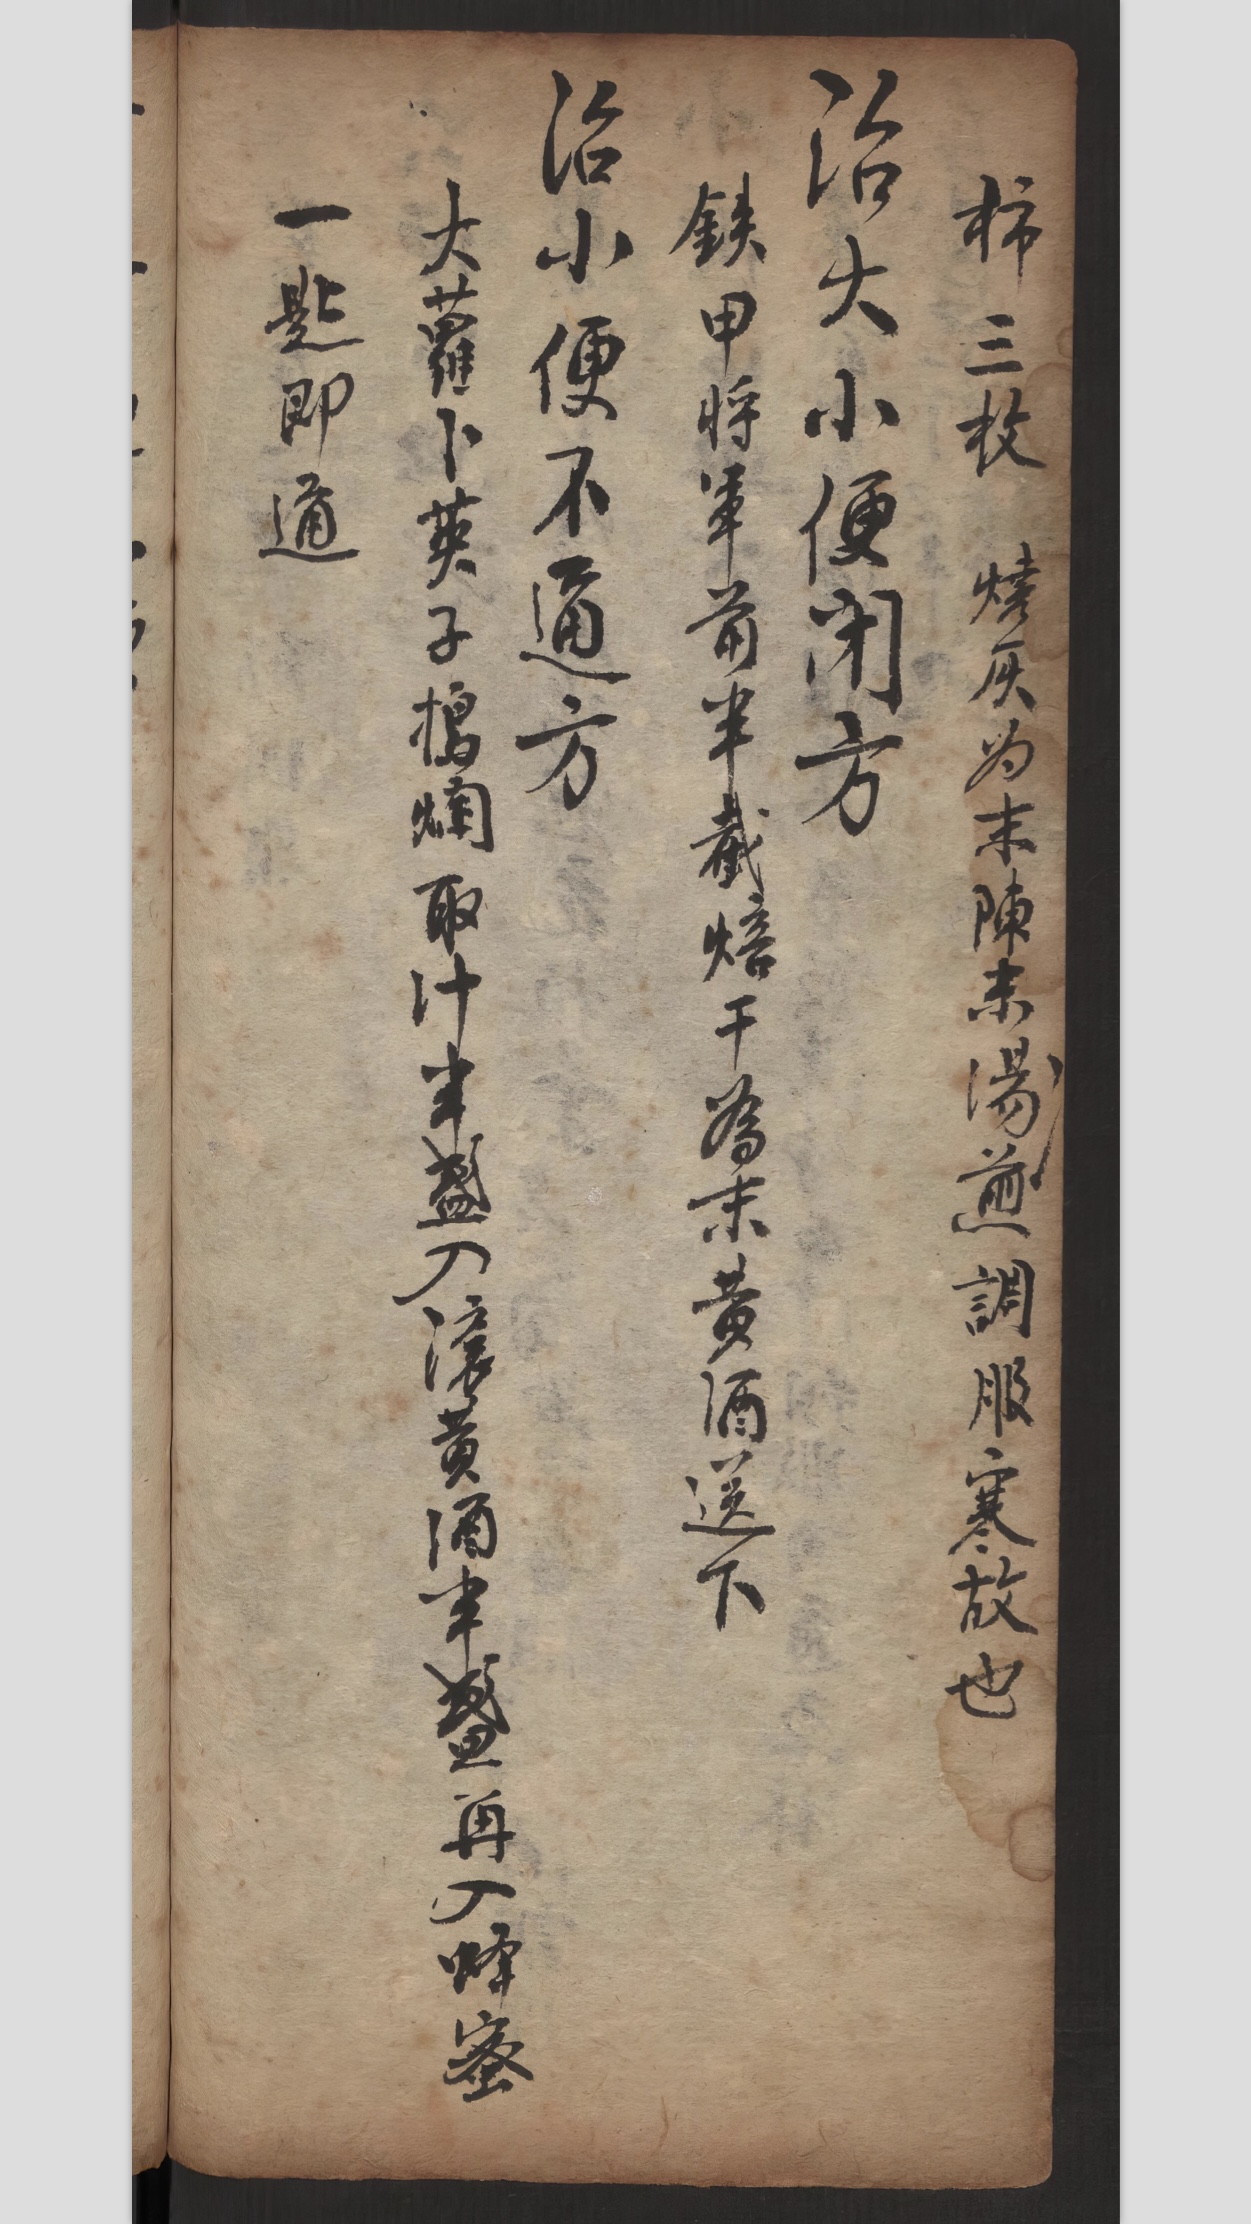 柿三枚　燒灰为末陳米湯煎調服寒故也
治大小便閉方
鉄甲将軍前半截焙干為末黄酒送下
治小便不通方
大蘿卜英子搗爛取汁半盞入滚黄酒半盞再入蜂蜜
一匙即通